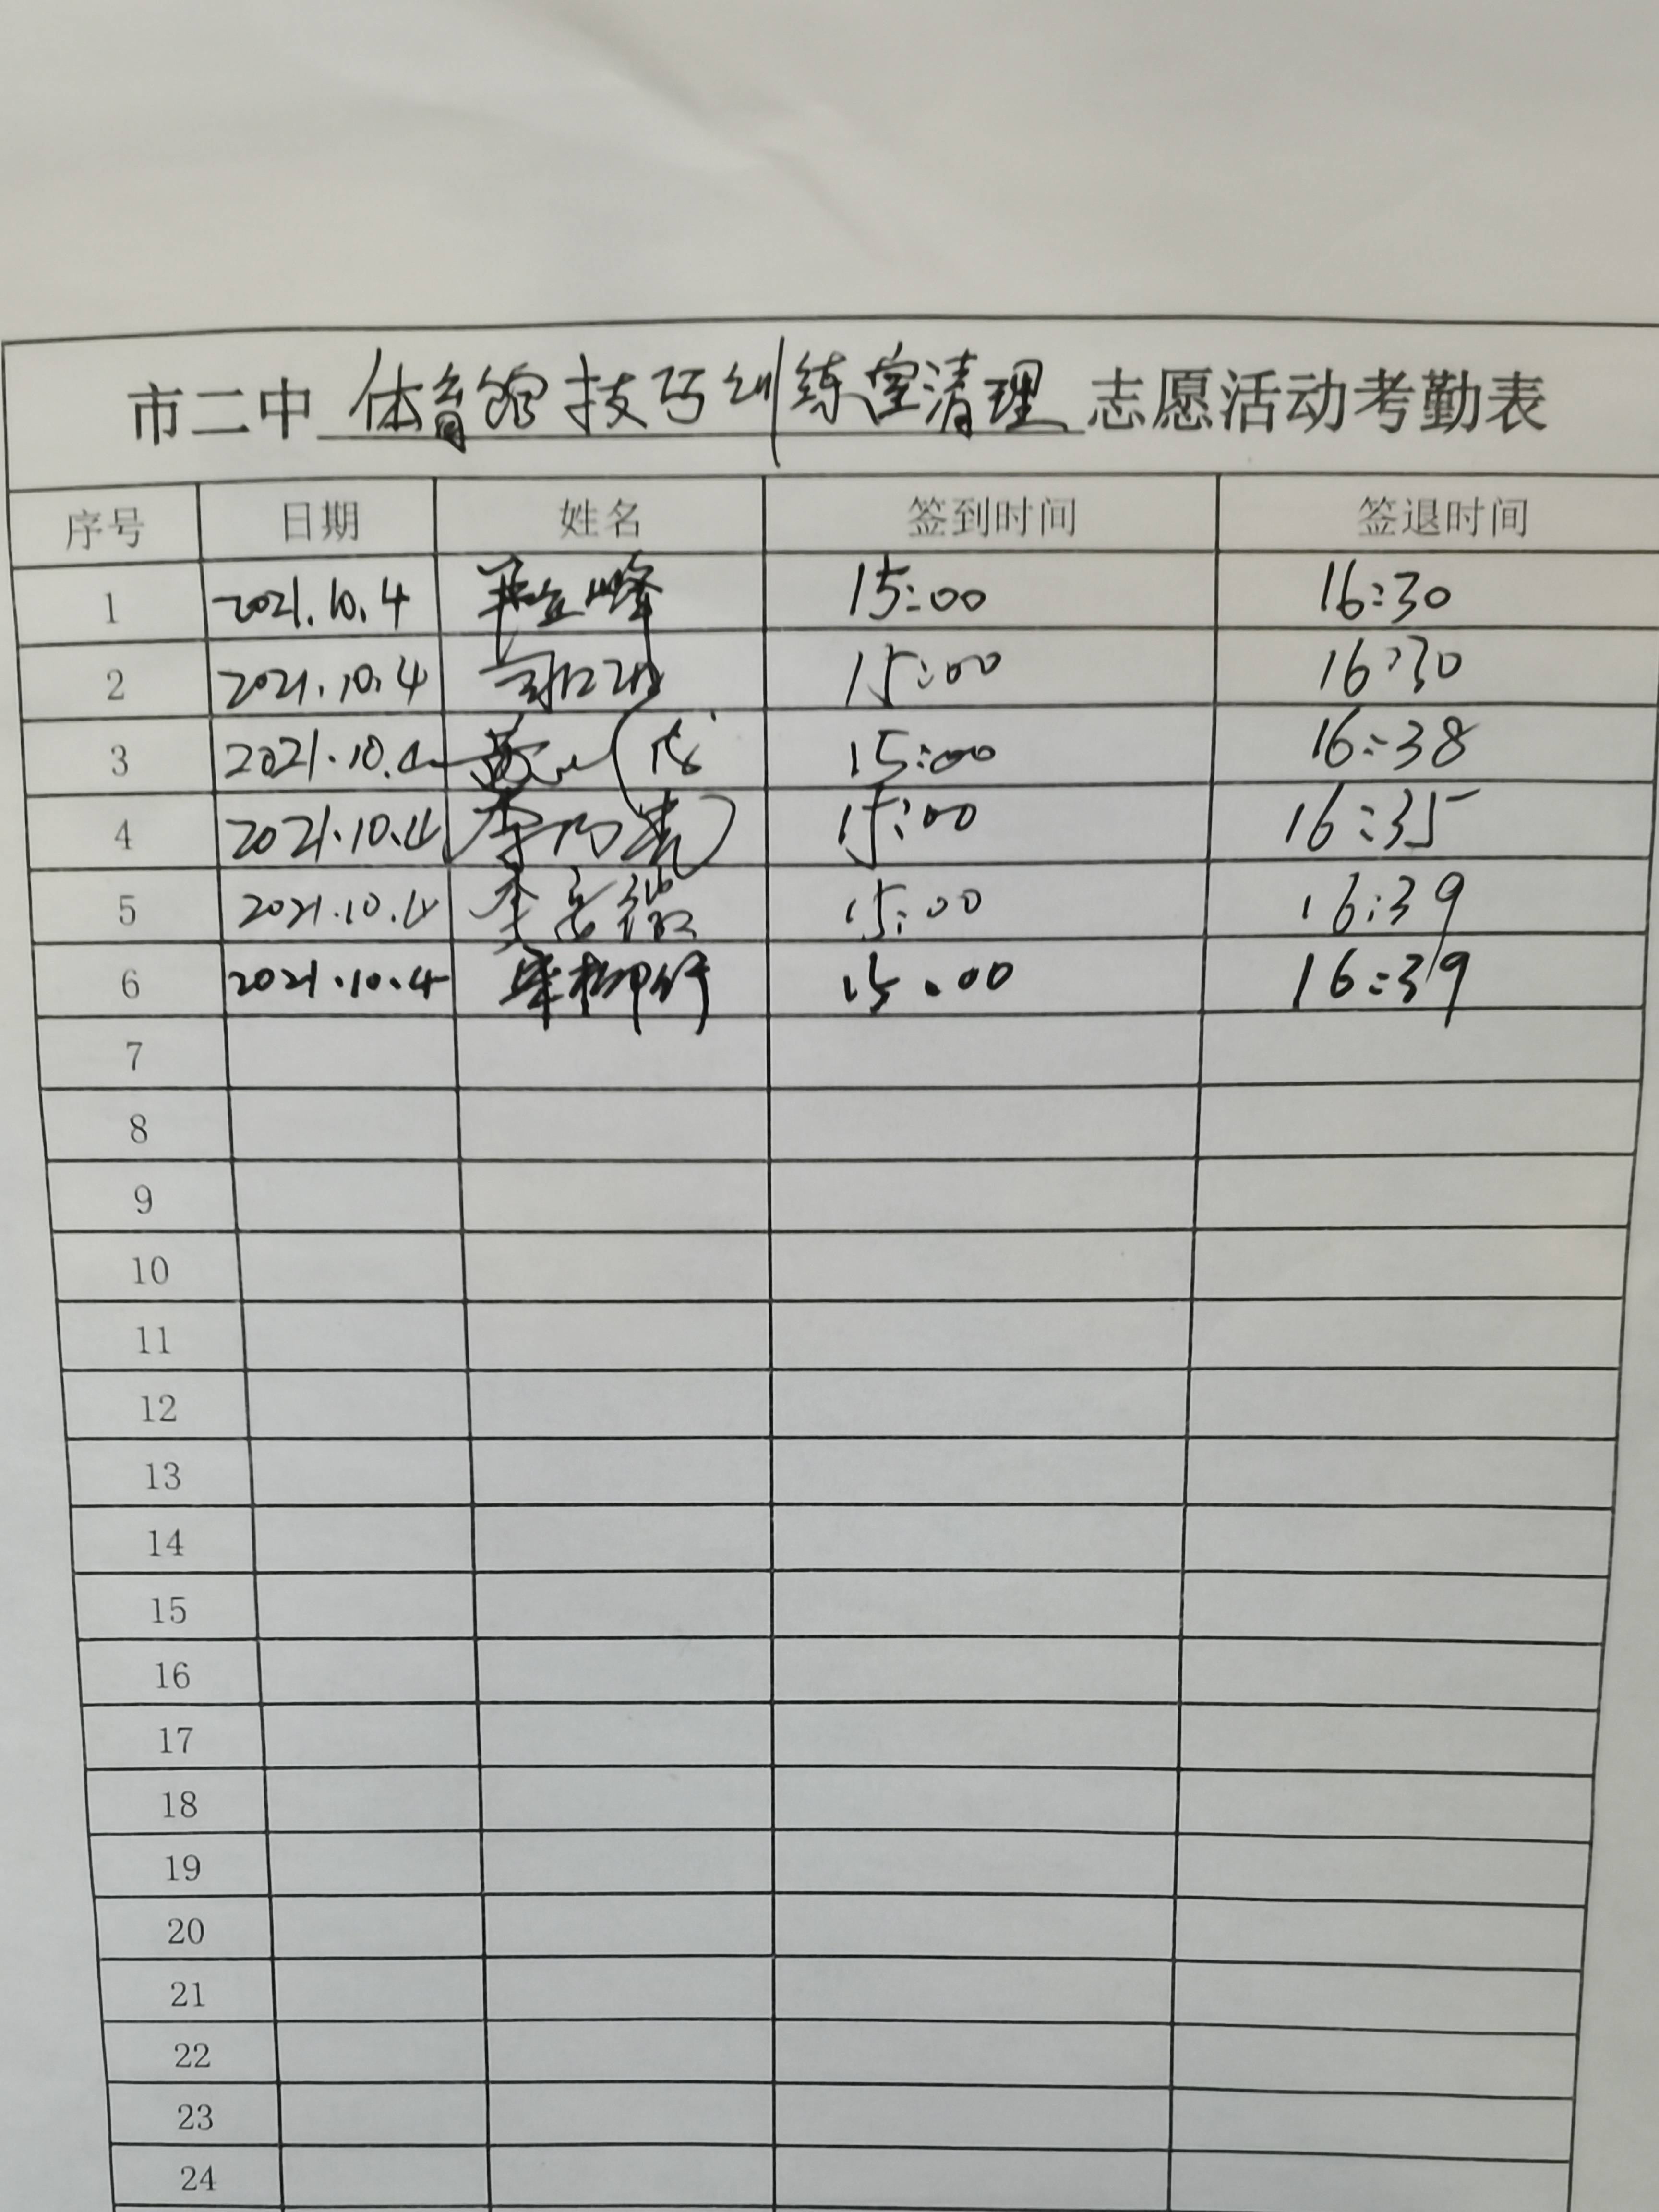 市二中 体育馆技巧训练室清理 志愿活动考勤表
序号 日期 姓名 签到时间 签退时间
1 2021.10.4 15:00 16:30
2 2021.10.4 15:00 16:30
3 2021.10.4 15:00 16:38
4 2021.10.4 15:00 16:35
5 2021.10.4 15:00 16:39
6 2021.10.4 柴柳舒 15:00 16:39
7
8
9
10
11
12
13
14
15
16
17
18
19
20
21
22
23
24